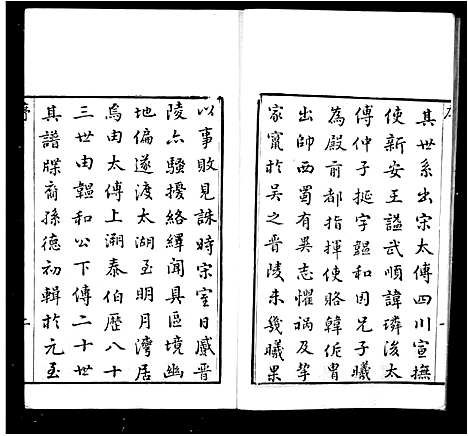 其世系出宋太傅四川宣撫
使新安王諡武順諱璘後太
傅仲子挺字韞和因兄子曦
為殿前都指揮使賂韓侂胄
出帥西蜀有吳志懼禍及挈
家竄於吳之晉陵未幾曦果
以事敗見誅時宋室日蹙晉
陵亦騷擾絡繹聞具區境幽
地偏遂渡太湖至明月灣居
焉由太傅上溯泰伯歷八十
三世由韞和公下傳二十世
其譜牒裔孫德初輯於元至
序
二